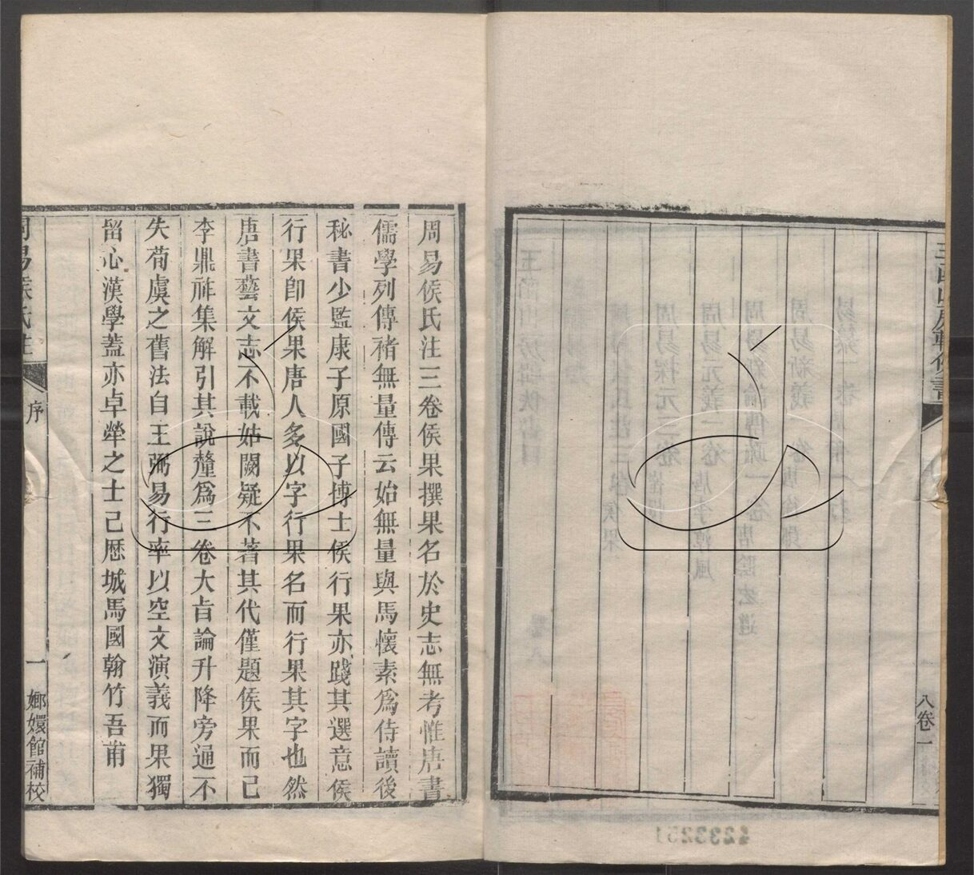 玉函山房輯佚書
八卷一
周易侯氏注三卷侯果撰果名於史志無考惟唐書
儒學列傳褚無量傳云始無量與馬懷素爲侍讀後
秘書少監康子原國子博士侯行果亦踐其選意侯
行果卽侯果唐人多以字行果名而行果其字也然
唐書藝文志不載姑闕疑不著其代僅題侯果而已
李鼎祚集解引其說釐爲三卷大旨論升降旁通不
失荀虞之舊法自王弼易行率以空文演義而果獨
留心漢學蓋亦卓犖之士已歴城馬國翰竹吾甫
周易侯氏注
序
一
嫏嬛館補校